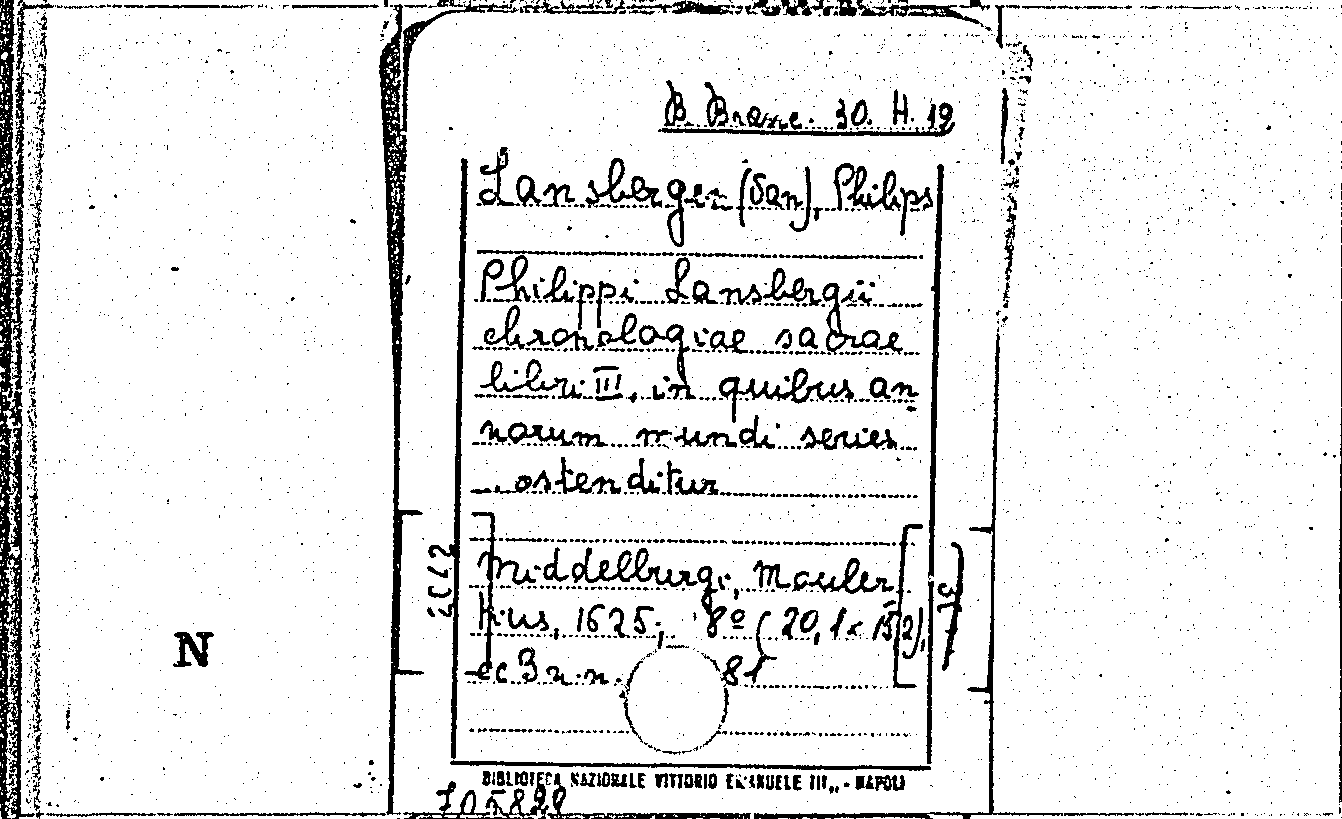 B. Branc. 30. H. 12
Lansbergen (Van), Philips
Philippi Lansbergii
chronologiae sacrae
libri III, in quibus an
norum mundi series
... ostenditur
Middelburgi, Mouler
tius, 1625; 8º (20,1 x 15,2),
cc 3 n.n. 81
N
BIBLIOTECA NAZIONALE VITTORIO EMANUELE III,, - NAPOLI